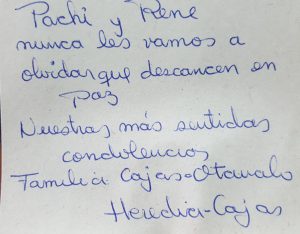 Pachi y Rene
nunca les vamos a
olvidar que descancen en
paz
Nuestras más sentidas
condolencias
Familia Cajas-Otavalo
Heredia-Cajas